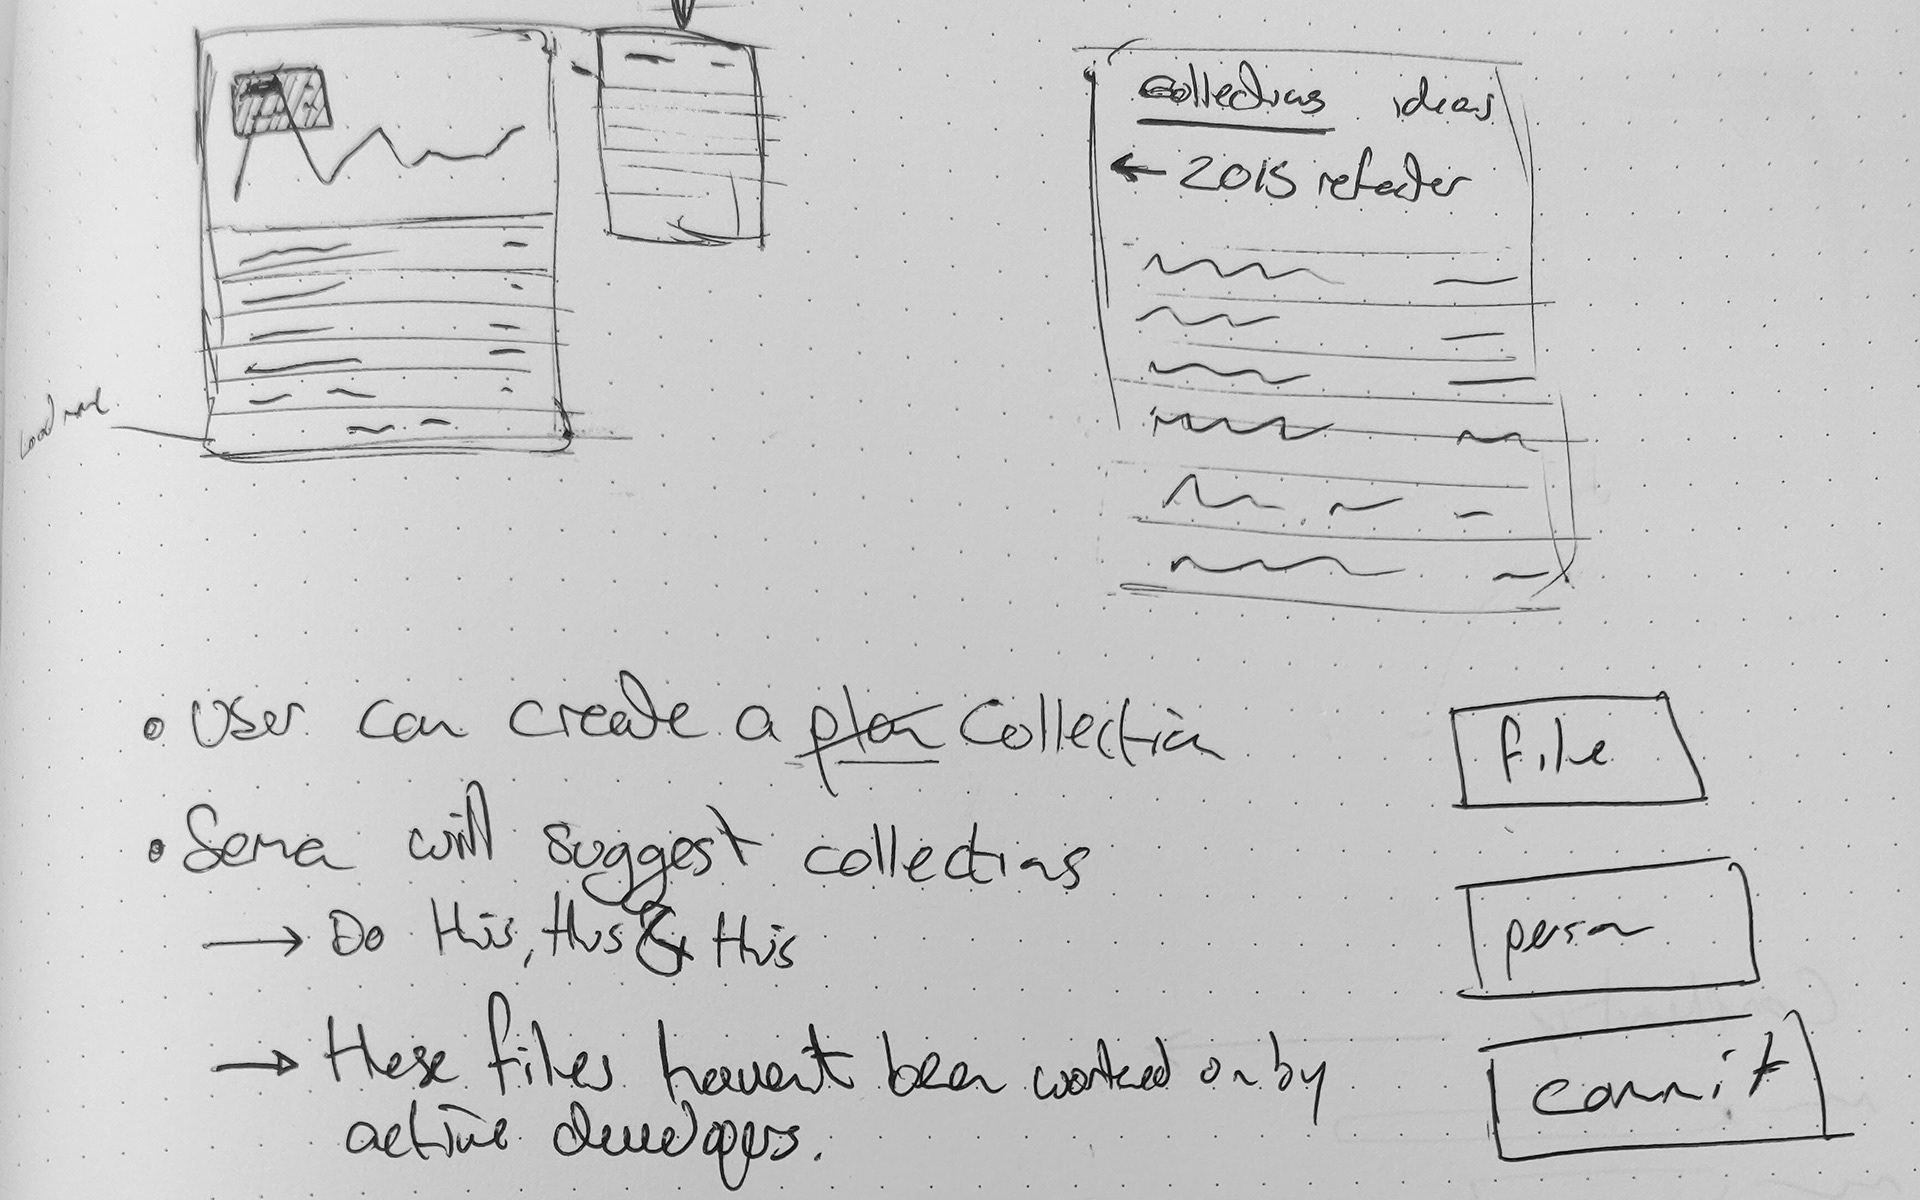 Collections ideas
← 2015 refactor
Load more
• User can create a ~~plan~~ Collection
• Sema will suggest collections
→ Do this, this & this
→ these files havent been worked on by
active developers.
file
person
commit